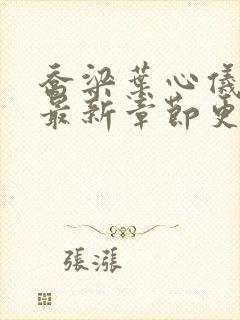 喬梁葉心儀
最新章節更
張漲